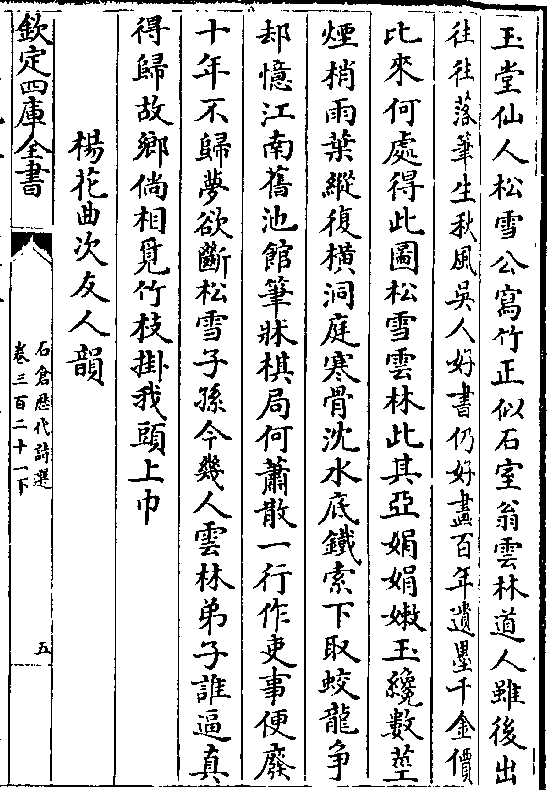 玉堂仙人松雪公寫竹正似石室翁雲林道人雖後出
往往落筆生秋風吳人好書仍好畫百年遺墨千金價
比來何處得此圖松雪雲林此其亞娟娟嫩玉纔數莖
煙梢雨葉縱復橫洞庭寒骨沈水底鐵索下取蛟龍争
却憶江南舊池館筆牀棋局何蕭散一行作吏事便廢
十年不歸夢欲斷松雪子孫今幾人雲林弟子誰逼真
得歸故鄉倘相覓竹枝掛我頭上巾
楊花曲次友人韻
欽定四庫全書
石倉歷代詩選
卷三百二十一下
五